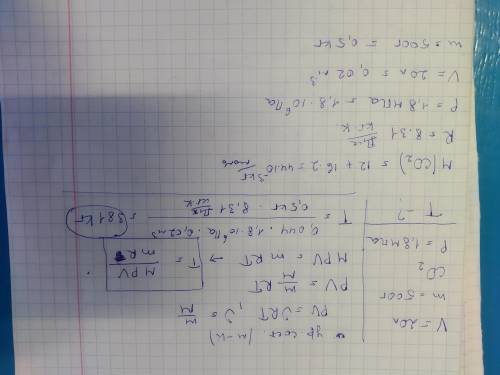 V = 20л
m = 500г
CO₂
P = 1,8 МПа
T - ?
ур. сост. (м-к)
PV = νRT, ν = m/M
PV = m/M RT
MPV = mRT → T = MPV/mR
T = (0,044 · 1,8·10⁶ Па · 0,02 м³)/(0,5 кг · 8,31 Дж/кг·К) = 381 кг
M(CO₂) = 12 + 16·2 = 44·10⁻³ кг/моль
R = 8,31 Дж/кг·К
P = 1,8 МПа = 1,8·10⁶ Па
V = 20л = 0,02 м³
m = 500г = 0,5 кг